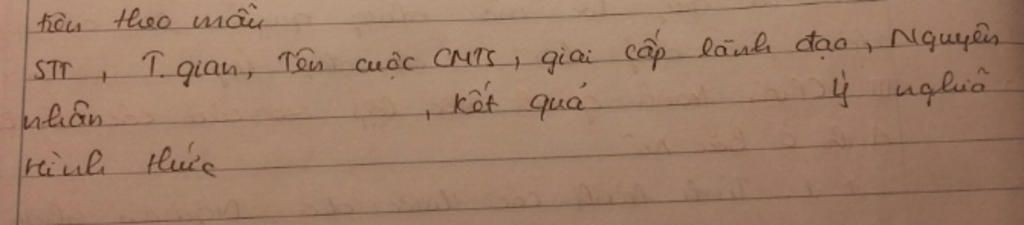 trên theo mẫu
STT, T.gian, Tên cuộc CMTS, giai cấp lãnh đạo, Nguyên
nhân , kết quả ý nghĩa
Hình thức